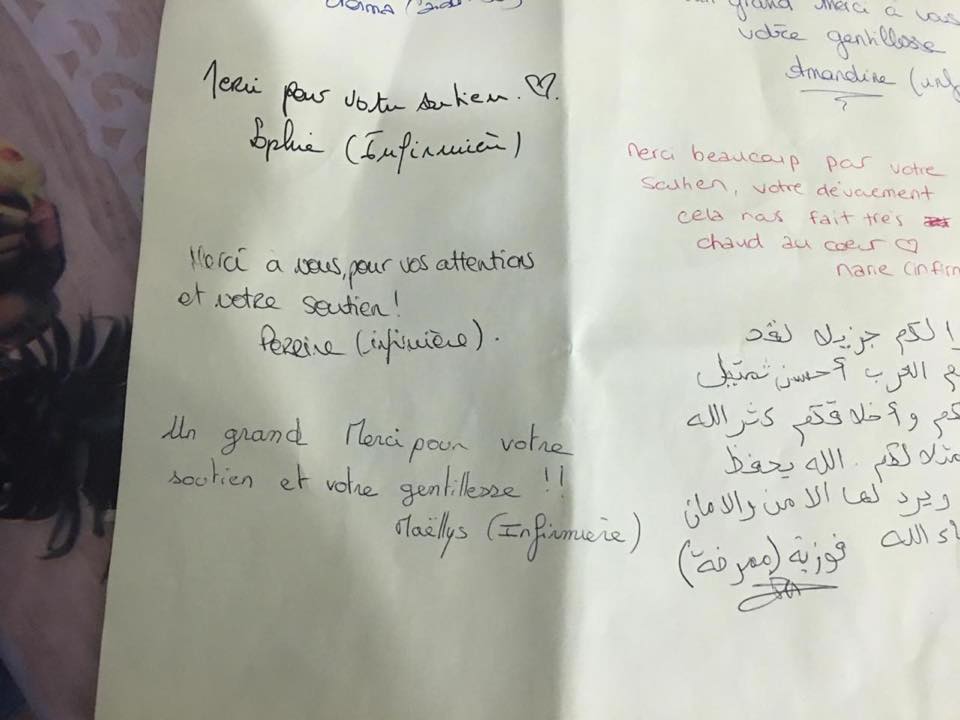 Merci pour votre soutien. ♡.
Sophie (Infirmière)
Merci à vous, pour vos attentions
et votre soutien !
Perrine (infirmière).
Un grand Merci pour votre
soutien et votre gentillesse !!
Maëllys (Infirmière)
grand Merci à vous
votre gentillesse
Amandine (inf
Merci beaucoup par votre
soutien, votre dévuement
cela nous fait très
chaud au coeur ♡
Marie (infirm
لكم جزيلا لقد
العرب أحسن تمثيل
وأخلاقكم كثر الله
لكم. الله يحفظ
ويرد لها الامن والامان
الله
فوزية (ممرضة)